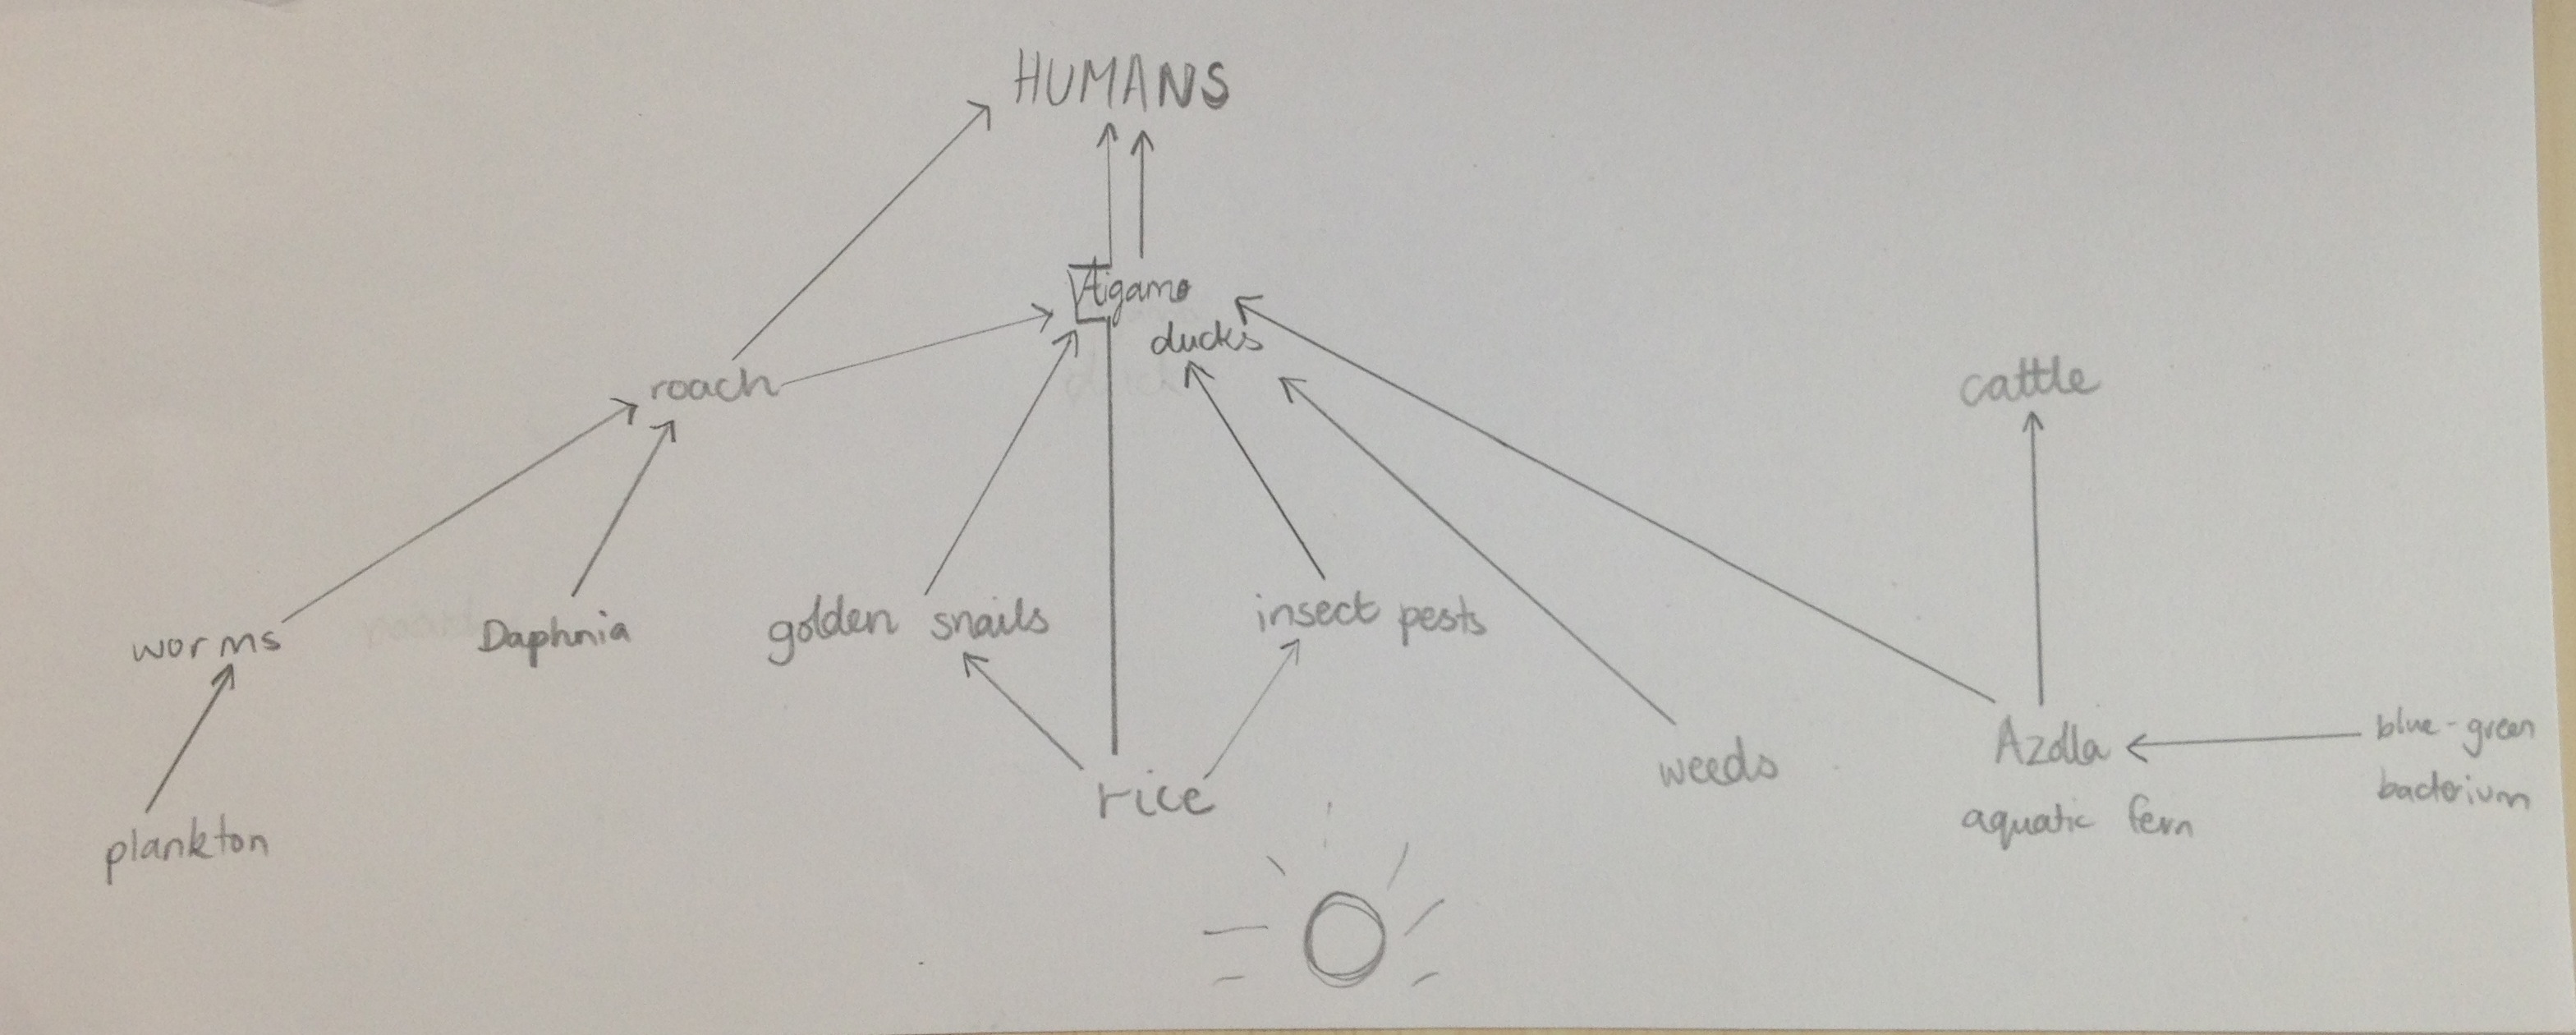 HUMANS
Aigamo
ducks
roach
cattle
worms
Daphnia
golden snails
insect pests
weeds
Azolla
aquatic fern
blue-green
bacterium
rice
plankton